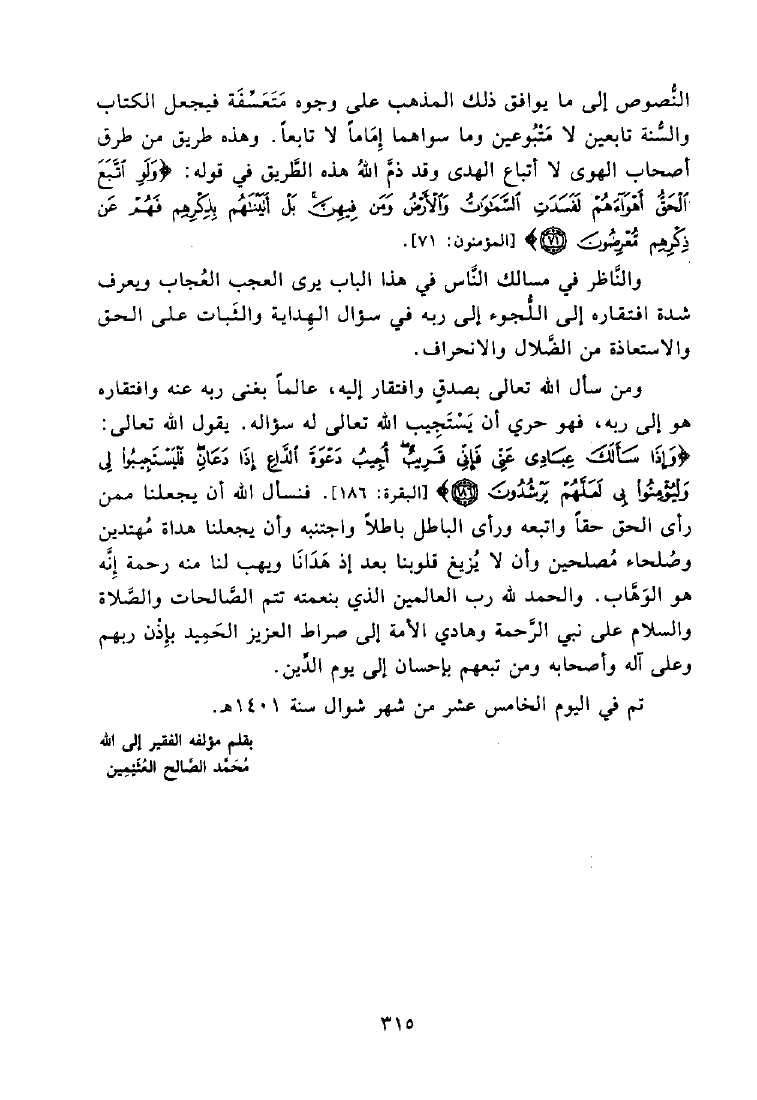 النُّصوص إلى ما يوافق ذلك المذهب على وجوه مَتَعَسِّفَة فيجعل الكتاب
والسُّنة تابعين لا مَتْبُوعين وما سواهما إمَاماً لا تابعاً. وهذه طريق من طرق
أصحاب الهوى لا أتباع الهدى وقد ذمَّ اللهُ هذه الطَّريق في قوله: ﴿وَلَوِ ٱتَّبَعَ
ٱلْحَقُّ أَهْوَآءَهُمْ لَفَسَدَتِ ٱلسَّمَٰوَٰتُ وَٱلْأَرْضُ وَمَن فِيهِنَّ ۚ بَلْ أَتَيْنَٰهُم بِذِكْرِهِمْ فَهُمْ عَن
ذِكْرِهِم مُّعْرِضُونَ ﴿٧١﴾﴾ [المؤمنون: ٧١].
والنَّاظر في مسالك النَّاس في هذا الباب يرى العجب العُجاب ويعرف
شدة افتقاره إلى اللُّجوء إلى ربه في سؤال الهِداية والثَّبات على الحق
والاستعاذة من الضَّلال والانحراف.
ومن سأل الله تعالى بصدقٍ وافتقار إليه، عالماً بغنى ربه عنه وافتقاره
هو إلى ربه، فهو حري أن يَسْتَجِيب الله تعالى له سؤاله. يقول الله تعالى:
﴿وَإِذَا سَأَلَكَ عِبَادِى عَنِّى فَإِنِّى قَرِيبٌ ۖ أُجِيبُ دَعْوَةَ ٱلدَّاعِ إِذَا دَعَانِ ۖ فَلْيَسْتَجِيبُوا۟ لِى
وَلْيُؤْمِنُوا۟ بِى لَعَلَّهُمْ يَرْشُدُونَ ﴿١٨٦﴾﴾ [البقرة: ١٨٦]. فنسأل الله أن يجعلنا ممن
رأى الحق حقاً واتبعه ورأى الباطل باطلاً واجتنبه وأن يجعلنا هداة مُهتدين
وصُلحاء مُصلحين وأن لا يُزيغ قلوبنا بعد إذ هَدَانَا ويهب لنا منه رحمة إنَّه
هو الوَهَّاب. والحمد لله رب العالمين الذي بنعمته تتم الصَّالحات والصَّلاة
والسلام على نبي الرَّحمة وهادي الأمة إلى صراط العزيز الحَمِيد بإِذْن ربهم
وعلى آله وأصحابه ومن تبعهم بإحسان إلى يوم الدِّين.
تم في اليوم الخامس عشر من شهر شوال سنة ١٤٠١هـ.
بقلم مؤلفه الفقير إلى الله
مُحَمَّد الصَّالح العُثَيْمِين
٣١٥